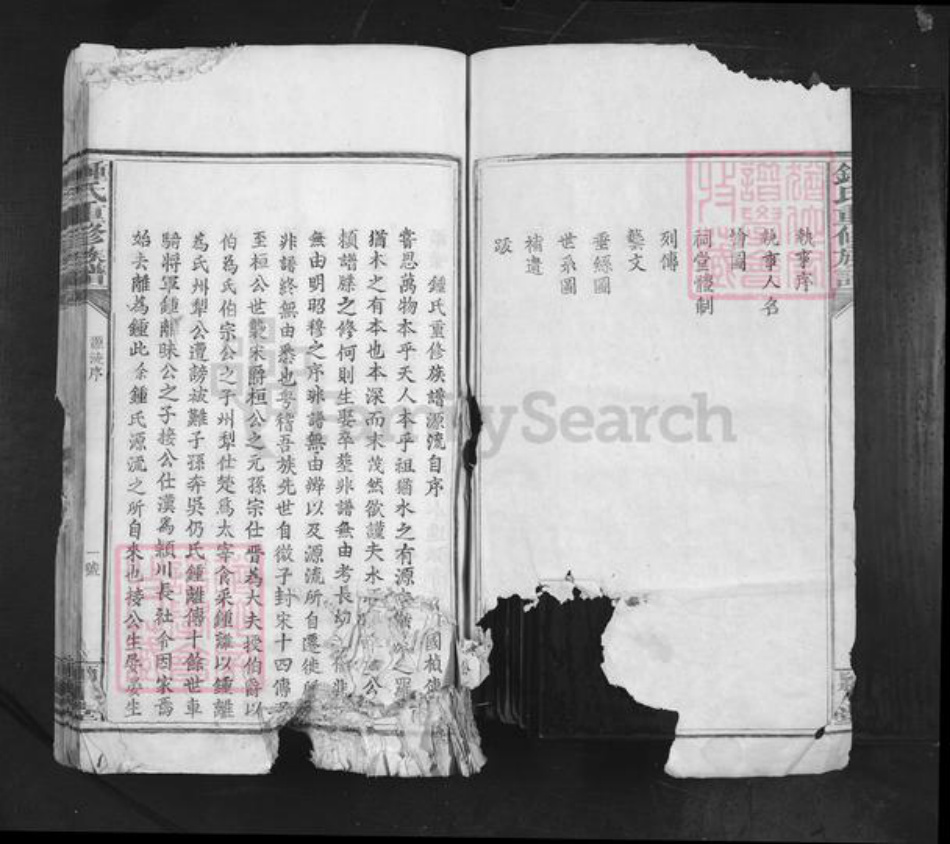 執事序
執事人名
繪圖
祠堂禮制
列傳
藝文
垂絲圖
世系圖
補遺
跋
鍾氏重修族譜
鍾氏重修族譜源流自序
國楨
嘗思萬物本乎天人本乎祖猶水之有源
猶木之有本也本深而末茂然欲謹夫水
頻譜牒之修何則生娶卒塟非譜無由考長幼
無由明昭穆之序非譜無由辦以及源流所自遷徙
非譜終無由悉也考稽吾族先世自微子封宋十四傳
至桓公世襲宋爵桓公之元孫宗仕晉為大夫授伯爵以
伯為氏伯宗公之子州犁仕楚為太宰食采鍾離以鍾離
為氏州犁公遭謗被難子孫奔吳仍氏鍾離傳十餘世車
騎將軍鍾離昧公之子接公仕漢為穎川長社令因家焉
始去離為鍾此余鍾氏源流之所自來也接公生
源流序
一號
FamilySearch